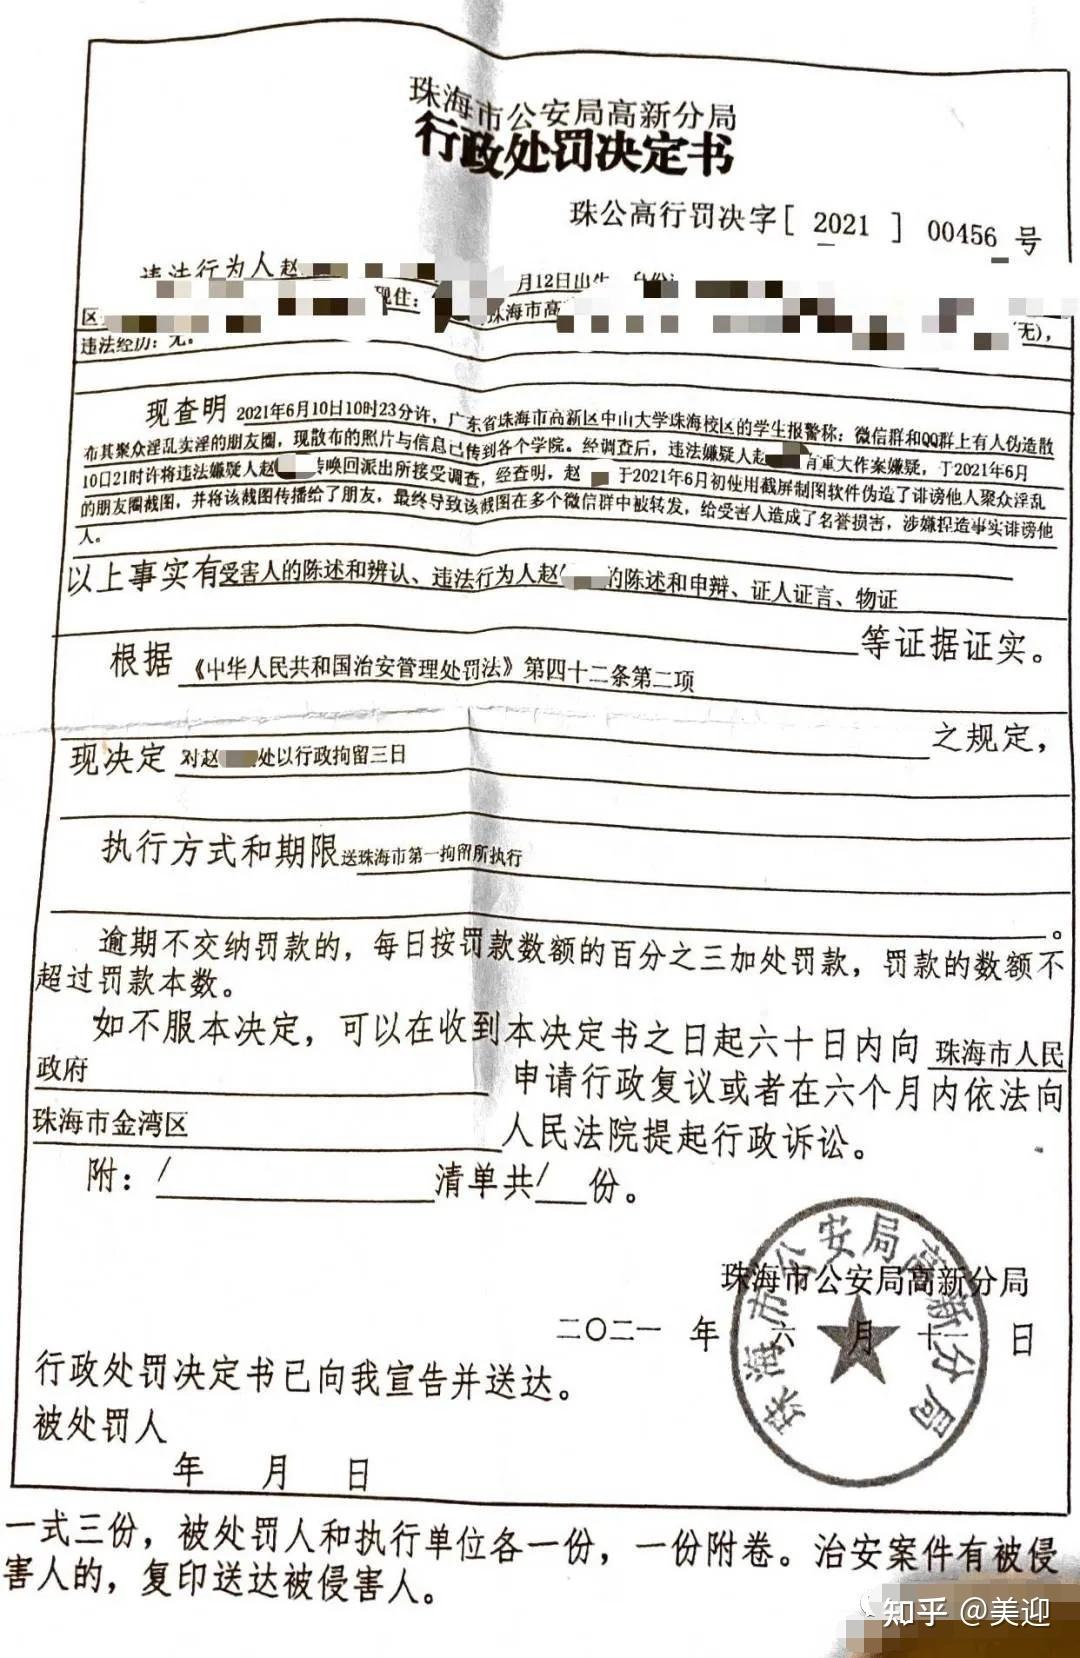 珠海市公安局高新分局
行政处罚决定书
珠公高行罚决字[ 2021 ] 00456 号
违法行为人赵 月12日出生
区 现住: 珠海市高 (无),
违法经历: 无。
现查明 2021年6月10日10时23分许, 广东省珠海市高新区中山大学珠海校区的学生报警称: 微信群和QQ群上有人伪造散
布其聚众淫乱卖淫的朋友圈, 现散布的照片与信息已传到各个学院。经调查后, 违法嫌疑人赵 有重大作案嫌疑, 于2021年6月
10日21时许将违法嫌疑人赵 传唤回派出所接受调查, 经查明, 赵 于2021年6月初使用截屏制图软件伪造了诽谤他人聚众淫乱
的朋友圈截图, 并将该截图传播给了朋友, 最终导致该截图在多个微信群中被转发, 给受害人造成了名誉损害, 涉嫌捏造事实诽谤他
人。
以上事实有受害人的陈述和辨认、违法行为人赵 的陈述和申辩、证人证言、物证
等证据证实。
根据 《中华人民共和国治安管理处罚法》第四十二条第二项
之规定,
现决定 对赵 处以行政拘留三日
执行方式和期限 送珠海市第一拘留所执行
。
逾期不交纳罚款的, 每日按罚款数额的百分之三加处罚款, 罚款的数额不
超过罚款本数。
如不服本决定, 可以在收到本决定书之日起六十日内向 珠海市人民
政府 申请行政复议或者在六个月内依法向
珠海市金湾区 人民法院提起行政诉讼。
附: / 清单共/ 份。
珠海市公安局高新分局
二〇二一 年 六 月 十一 日
珠海市公安局高新分局
行政处罚决定书已向我宣告并送达。
被处罚人
年 月 日
一式三份, 被处罚人和执行单位各一份, 一份附卷。治安案件有被侵
害人的, 复印送达被侵害人。
知乎 @美迎